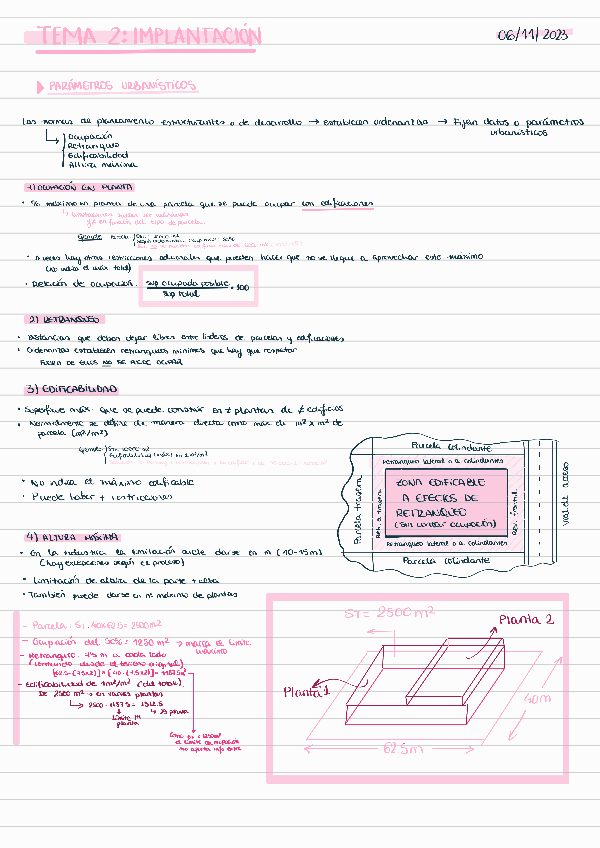 TEMA 2: IMPLANTACIÓN
06/11/2023
PARÁMETROS URBANÍSTICOS
Las normas de planeamiento estructurantes o de desarrollo → establecen ordenanzas → Fijan datos o parámetros
urbanísticos
Ocupación
Retranqueo
Edificabilidad
Altura máxima
1) OCUPACIÓN EN PLANTA
• % máximo en planta de una parcela que se puede ocupar con edificaciones
• A veces hay otras restricciones adicionales que pueden hacer que no se llegue a aprovechar este máximo
(no indica el máx total)
• Relación de ocupación: sup ocupada posible / sup total · 100
2) RETRANQUEO
• Distancias que deben dejar libres entre linderos de parcelas y edificaciones
• Ordenanzas establecen retranqueos mínimos que hay que respetar
FUERA DE ELLOS NO SE PUEDE OCUPAR
3) EDIFICABILIDAD
• Superficie máx. que se puede construir en ≠ plantas de ≠ edificios
• Normalmente se define de manera directa como máx de m² x m² de
parcela (m²/m²)
• No indica el máximo edificable
• Puede haber + restricciones
Parcela colindante
Retranqueo lateral o a colindantes
Parcela trasera
Ret. a trasera
ZONA EDIFICABLE
A EFECTOS DE
RETRANQUEO
(sin contar ocupación)
Ret. frontal
Vial de acceso
Retranqueo lateral o a colindantes
Parcela colindante
4) ALTURA MÁXIMA
• En la industria la limitación suele darse en m (10-15m)
(hay excepciones según el proceso)
• Limitación de altura de la parte + alta
• También puede darse en nº máximo de plantas
- Parcela: ST. 40x62.5 = 2500m²
- Ocupación del 50%: 1250 m² → marca el límite
máximo
- Retranqueo
- Edificabilidad de 1m²/m² (del total)
DE 2500 m² → en varias plantas
Límite 1ª
planta
ST = 2500 m²
Planta 2
Planta 1
40m
62.5m